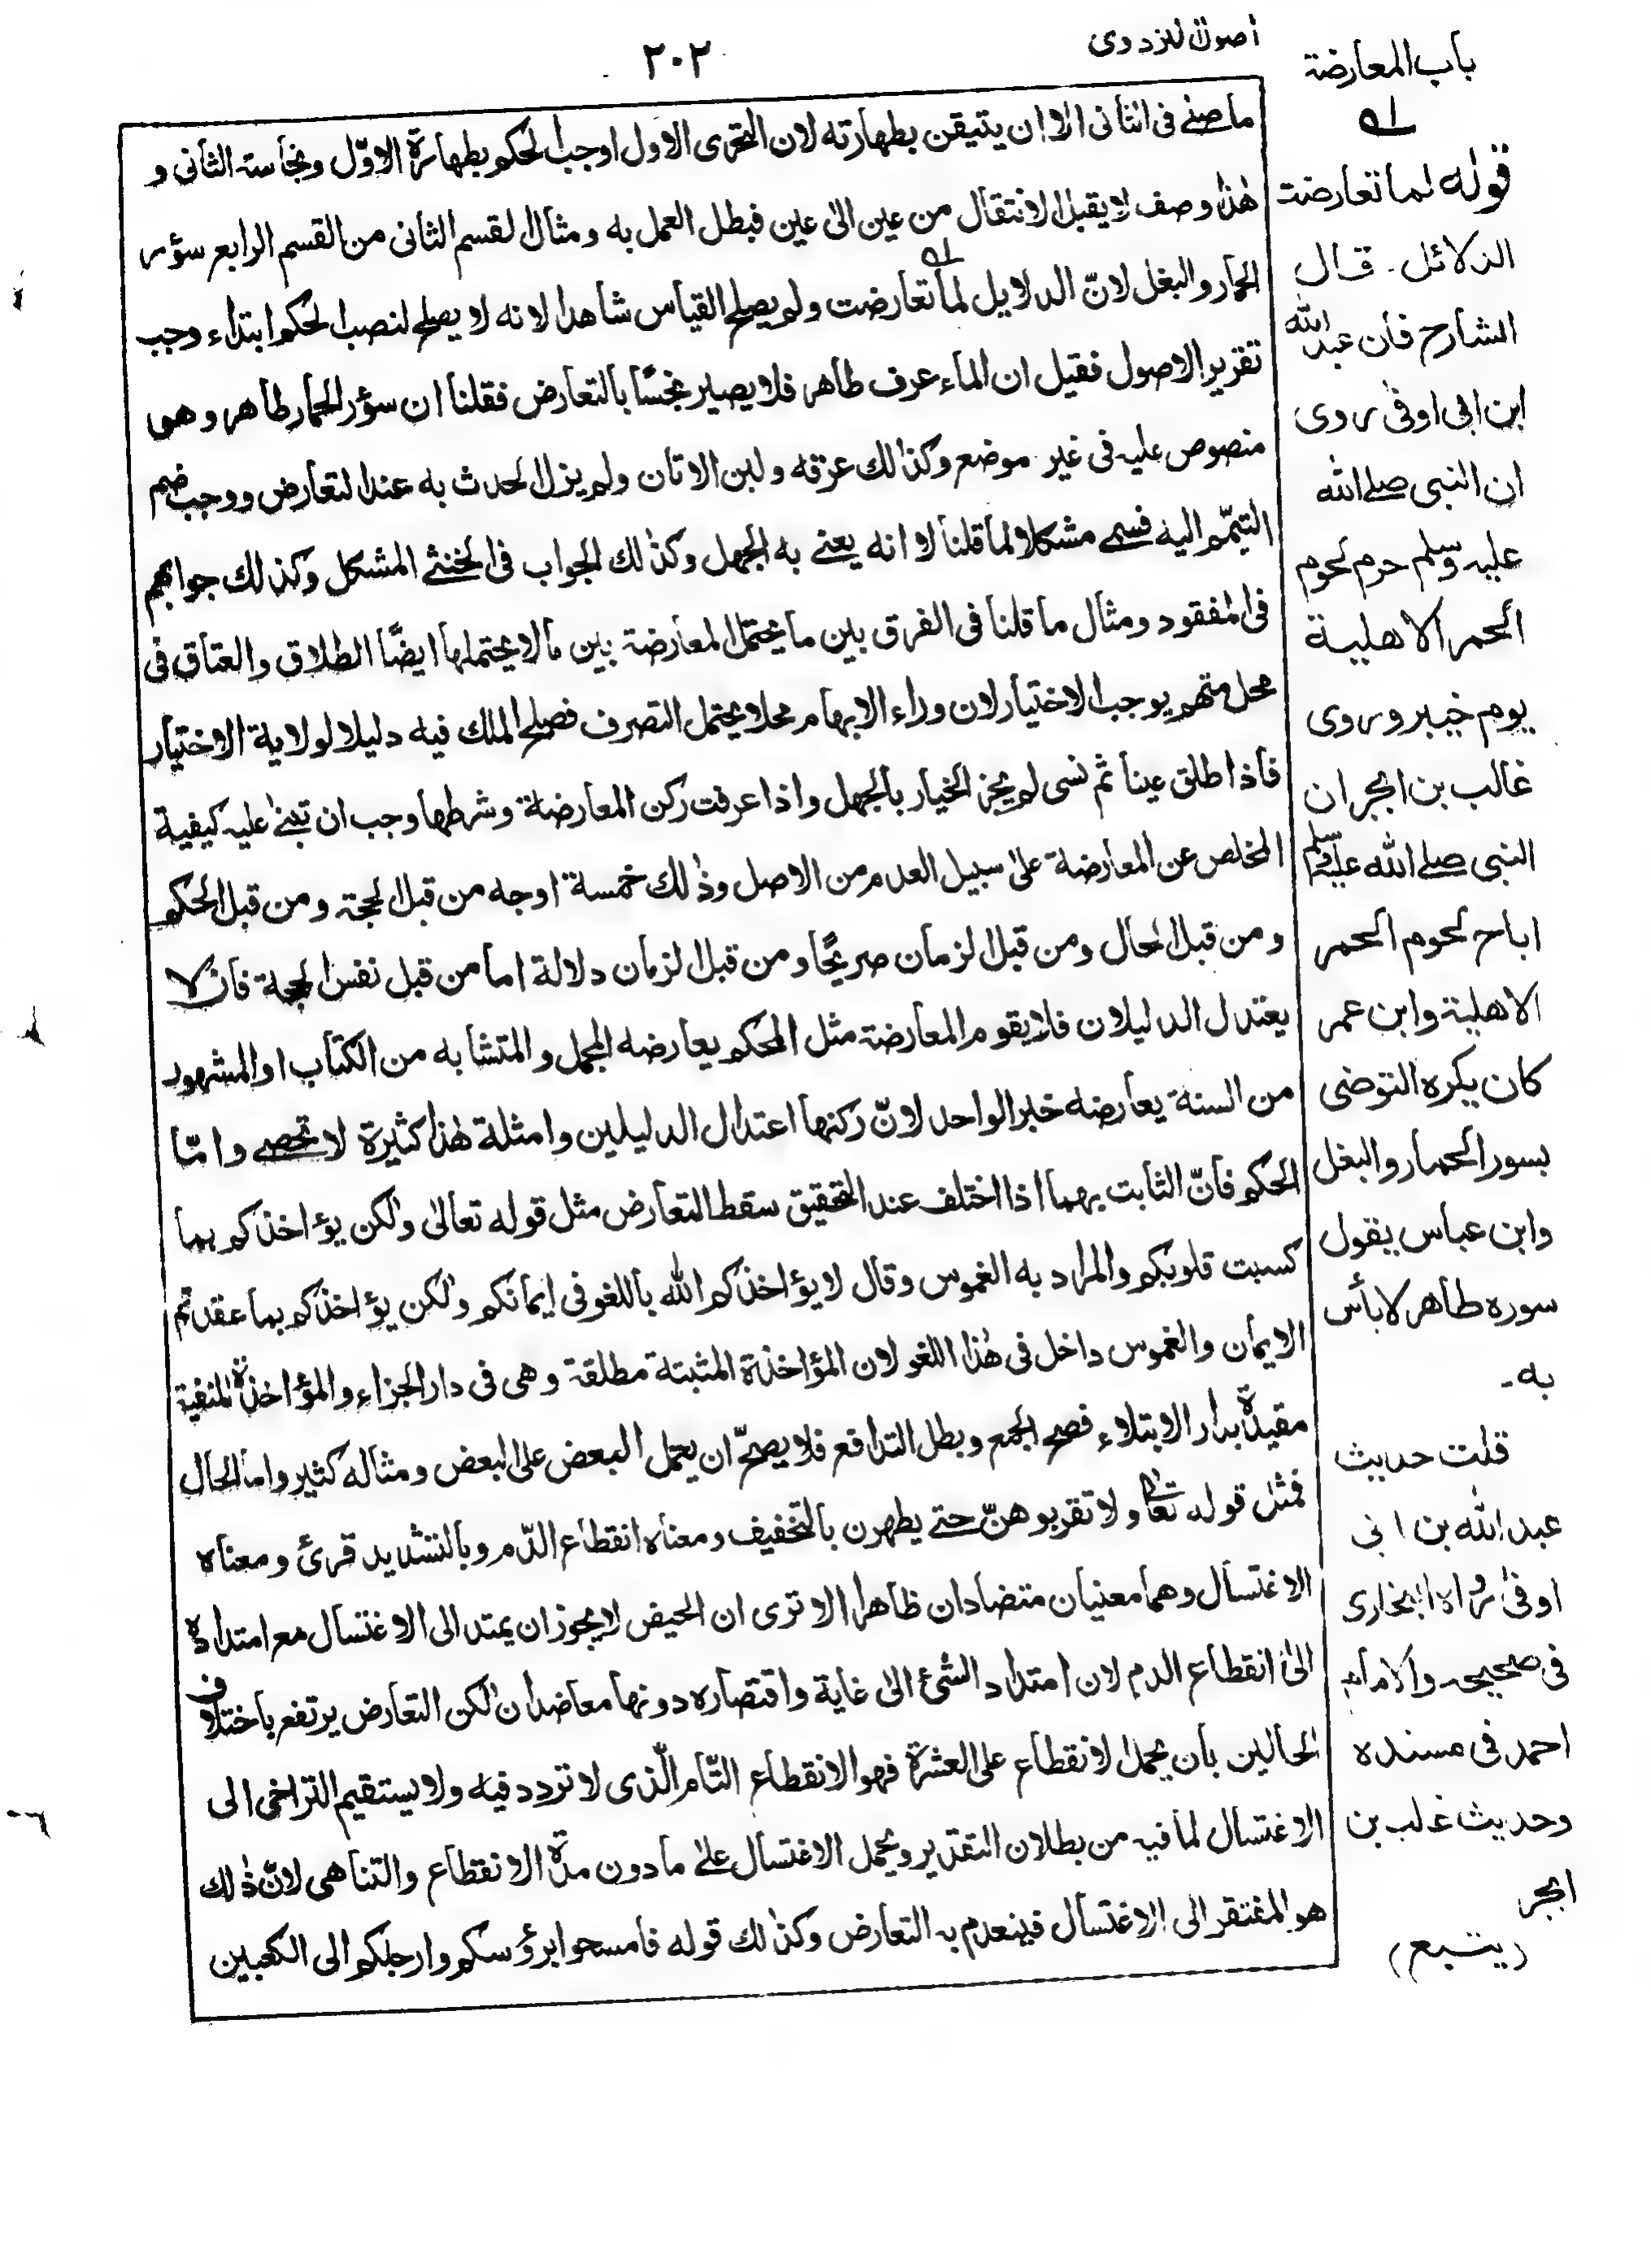 باب المعارضة
اصول للبزدوی
٢٠٢
ما صلى فى الثانى الا ان يتيقن بطهارته لان التحرى الاول اوجب الحكم بطهارة الاوّل ونجاسة الثانى و
هٰذا وصف لا يقبل الانتقال من عين الىٰ عين فبطل العمل به ومثال القسم الثانى من القسم الرابع سؤر
الحمار والبغل لانّ الدلايل لما تعارضت ولم يصلح القياس شاهدا لانه لا يصلح لنصب الحكم ابتداء وجب
تقرير الاصول فقيل ان الماء عرف طاهر فلا يصير نجسًا بالتعارض فقلنا ان سؤر الحمار طاهر وهو
منصوص عليه فى غير موضع وكذالك عرقه ولبن الاتان ولم يزل الحدث به عند التعارض ووجب ضم
التيمّم اليه فسمى مشكلا لما قلنا لا انه يعنى به الجهل وكذٰلك الجواب فى الخنثى المشكل وكذلك جوابهم
فى المفقود ومثال ما قلنا فى الفرق بين ما يحتمل المعارضة بين ما لا يحتملها ايضًا الطلاق والعتاق فى
محل متهم يوجب الاختيار لان وراء الابهام محلا يحتمل التصرف فصلح الملك فيه دليلا لولاية الاختيار
فاذا طلق عينا ثم نسى لم يجز الخيار بالجهل واذا عرفت ركن المعارضة وشرطها وجب ان تبنىٰ عليه كيفية
المخلص عن المعارضة علىٰ سبيل العدم من الاصل وذٰلك خمسة اوجه من قبل الحجة ومن قبل الحكم
ومن قبل الحال ومن قبل الزمان صريحًا ومن قبل الزمان دلالة اما من قبل نفس الحجة فان لا
يعتدل الدليلان فلا يقوم المعارضة مثل المحكم يعارضه المجمل والمتشابه من الكتاب او المشهور
من السنة يعارضه خبر الواحد لانّ ركنها اعتدال الدليلين وامثلة هٰذا كثيرة لا تحصى وامّا
الحكم فانّ الثابت بهما اذا اختلف عند التحقيق سقط التعارض مثل قوله تعالىٰ ولٰكن يؤاخذكم بما
كسبت قلوبكم والمراد به الغموس وقال لا يؤاخذكم الله باللغو فى ايمانكم ولٰكن يؤاخذكم بما عقدتم
الايمان والغموس داخل فى هٰذا اللغو لان المؤاخذة المثبتة مطلقة وهى فى دار الجزاء والمؤاخذة المنفية
مقيدة بدار الابتلاء فصح الجمع وبطل التدافع فلا يصحّ ان يحمل البعض على البعض ومثاله كثير واما الحال
فمثل قوله تعالىٰ ولا تقربوهنّ حتى يطهرن بالتخفيف ومعناه انقطاع الدّم وبالتشديد قرئ ومعناه
الاغتسال وهما معنيان متضادان ظاهرا الا ترى ان الحيض لا يجوز ان يمتد الى الاغتسال مع امتداده
الىٰ انقطاع الدم لان امتداد الشئ الىٰ غاية واقتصاره دونها معا ضدان لٰكن التعارض يرتفع باختلاف
الحالين بان يحمل الانقطاع على العشرة فهو الانقطاع التّام الّذى لا تردد فيه ولا يستقيم التراخى الى
الاغتسال لما فيه من بطلان التقدير ويحمل الاغتسال علىٰ ما دون مدة الانقطاع والتناهى لانّ ذٰلك
هو المفتقر الى الاغتسال فينعدم به التعارض وكذٰلك قوله فامسحوا برؤسكم وارجلكم الى الكعبين
له
قوله لما تعارضت
الدلائل۔ قال
الشارح فان عبد الله
ابن ابى اوفىٰ روى
ان النبى صلى الله
عليه وسلم حرم لحوم
الحمر الاهلية
يوم خيبر وروى
غالب بن ابجر ان
النبى صلى الله عليه وسلم
اباح لحوم الحمر
الاهلية وابن عمر
كان يكره التوضى
بسور الحمار والبغل
وابن عباس يقول
سوره طاهر لا بأس
به۔
قلت حديث
عبد الله بن ابى
اوفىٰ رواه البخارى
فى صحيحه والامام
احمد فى مسنده
وحديث غالب بن
ابجر
(يتبع)